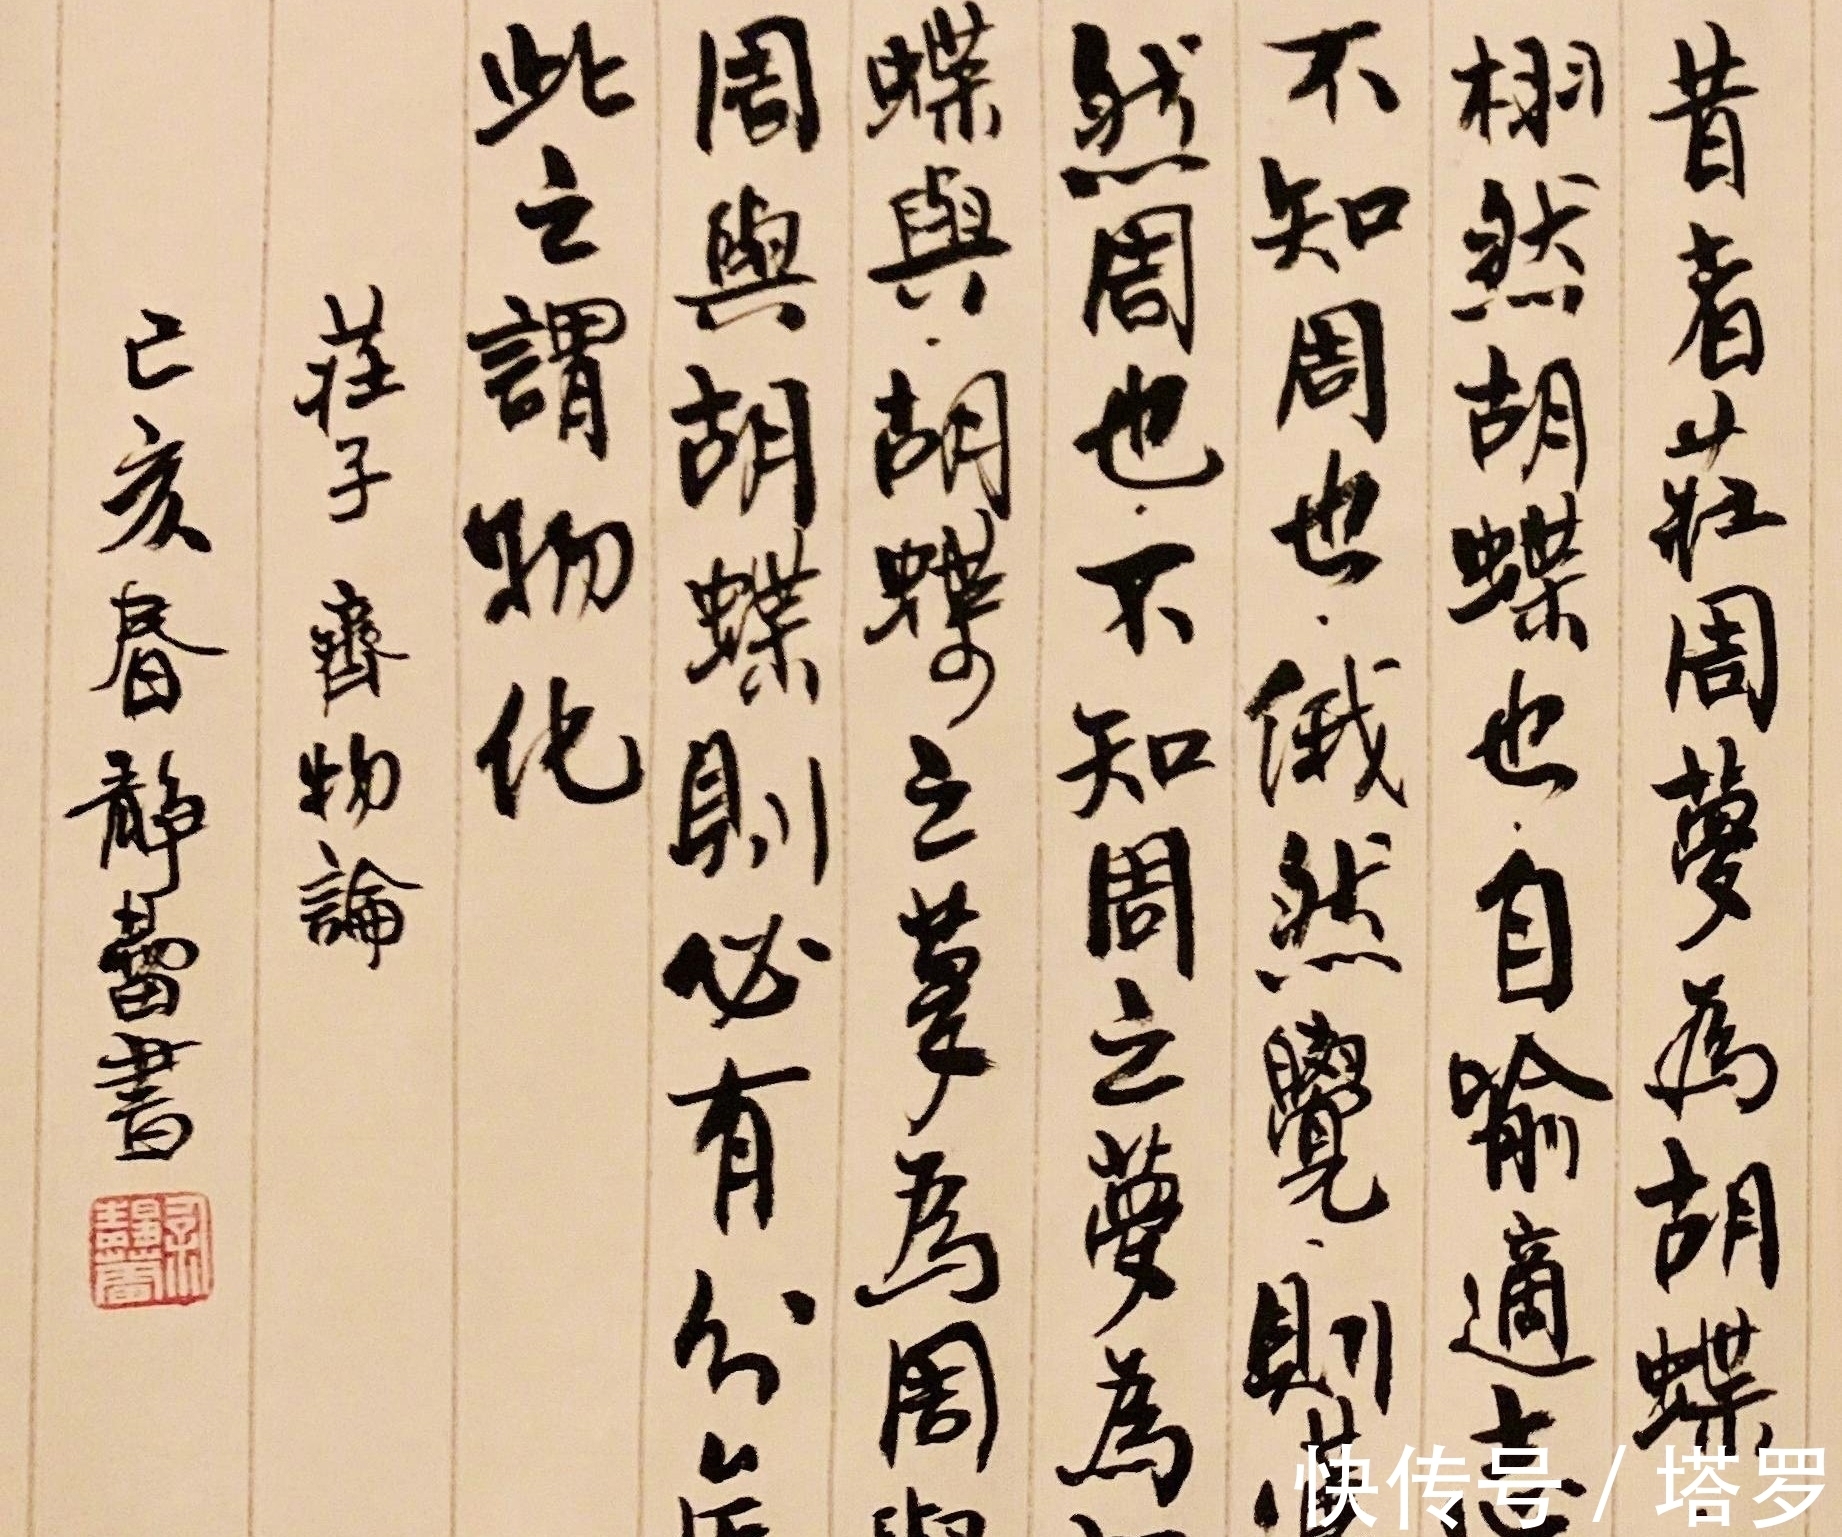 昔者莊周夢為胡蝶
栩然胡蝶也·自喻適志
不知周也·俄然覺·則
然周也·不知周之夢為
蝶與·胡蝶之夢為周與
周與胡蝶則必有分矣
此之謂物化
莊子 齊物論
己亥春靜蕾書
快传号 / 塔罗